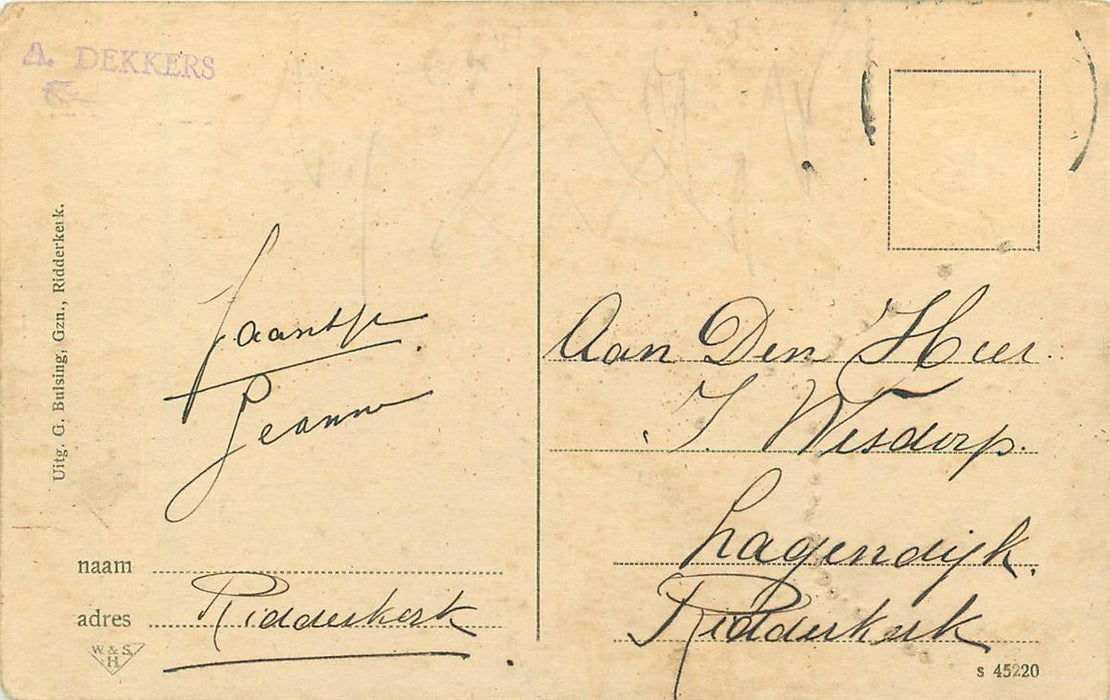 A. DEKKERS
Uitg. G. Bulsing, Gzn., Ridderkerk.
Jaantje
Jeanne
naam
adres Ridderkerk
W. & S.
H.
Aan Den Heer
J. Wesdorp.
Lagendijk.
Ridderkerk
S 45220